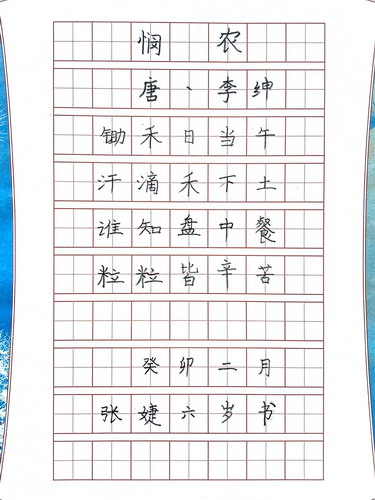 悯 农
唐、李绅
锄禾日当午
汗滴禾下土
谁知盘中餐
粒粒皆辛苦
癸卯二月
张婕六岁书